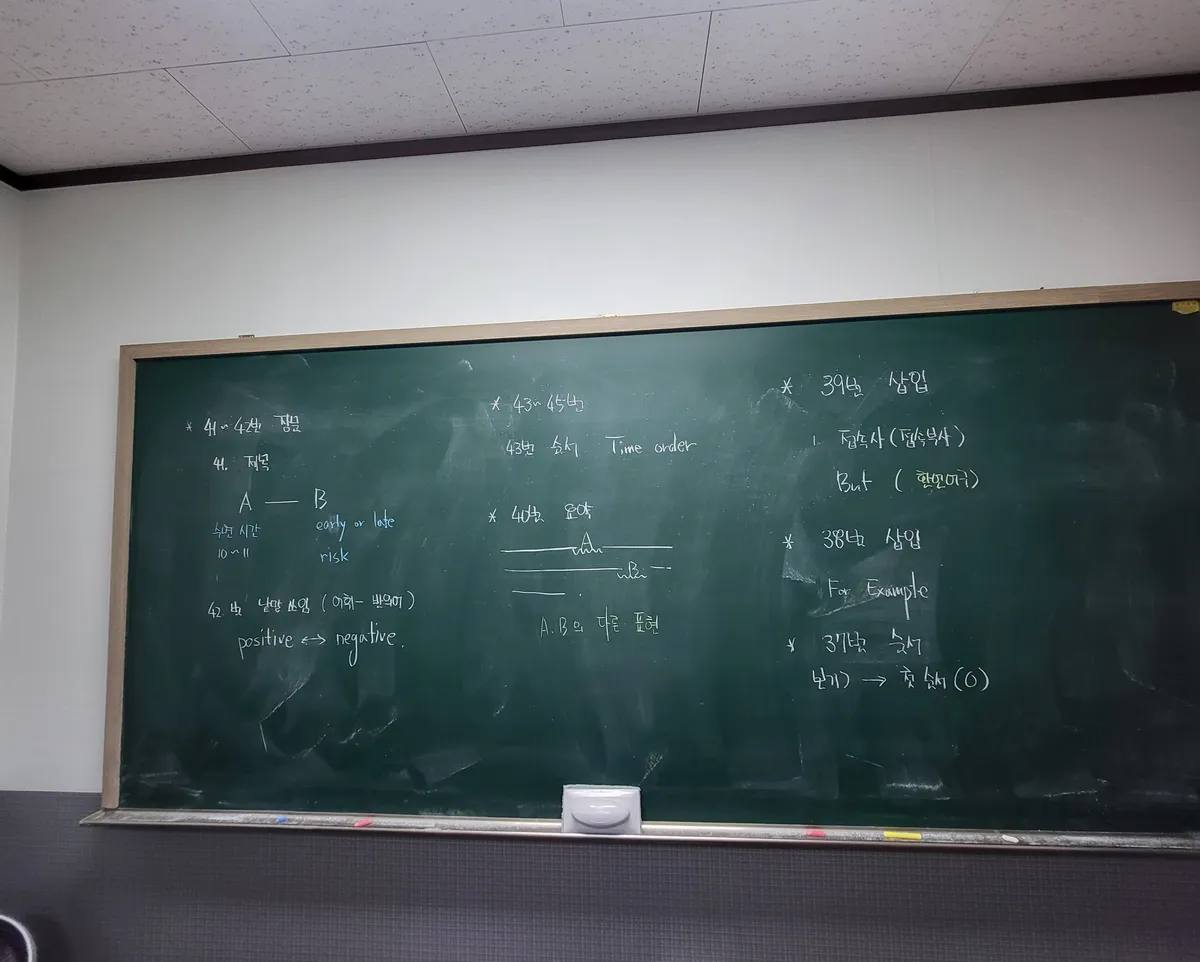 * 41~42번 장문
41. 제목
A — B
수면 시간 early or late
10~11 risk
42번 낱말 쓰임 (어휘 - 반의어)
positive ↔ negative.
* 43~45번
43번 순서 Time order
* 40번 요약
A
B
A.B의 다른 표현
* 39번 삽입
1. 접속사 (접속부사)
But (한영어구)
* 38번 삽입
For Example
* 37번 순서
보기) → 첫 순서 (O)